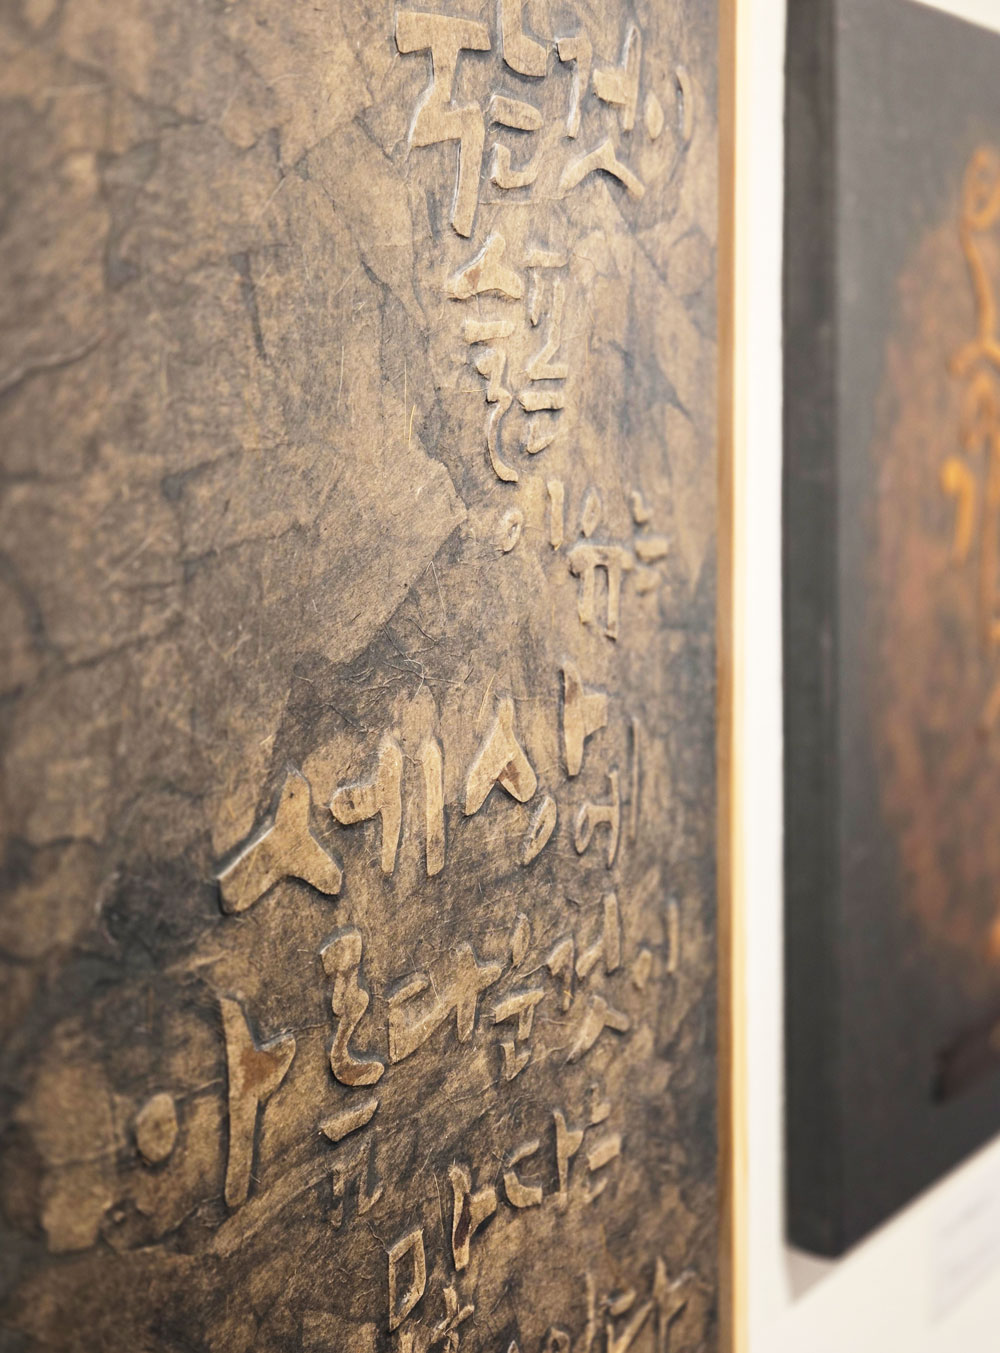 죽는 것이
슬픈
이유는
세상에
아름다운 것이
많다는